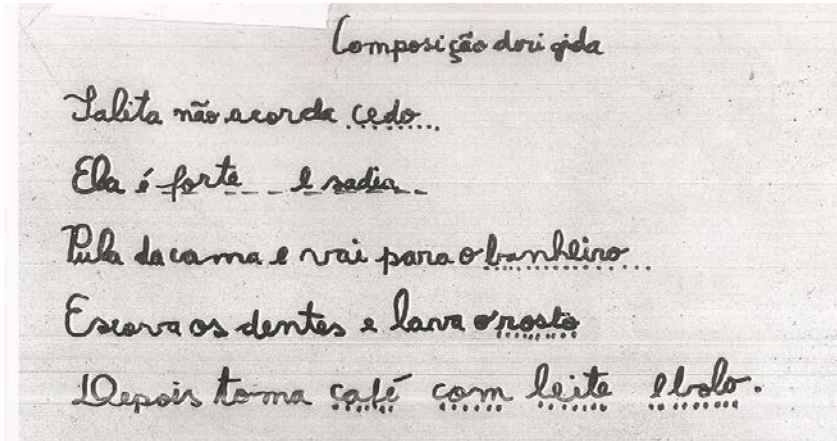 Composição dirigida
Talita não acorda cedo
Ela é forte e sadia
Pula da cama e vai para o banheiro
Escova os dentes e lava o rosto
Depois toma café com leite e bolo.